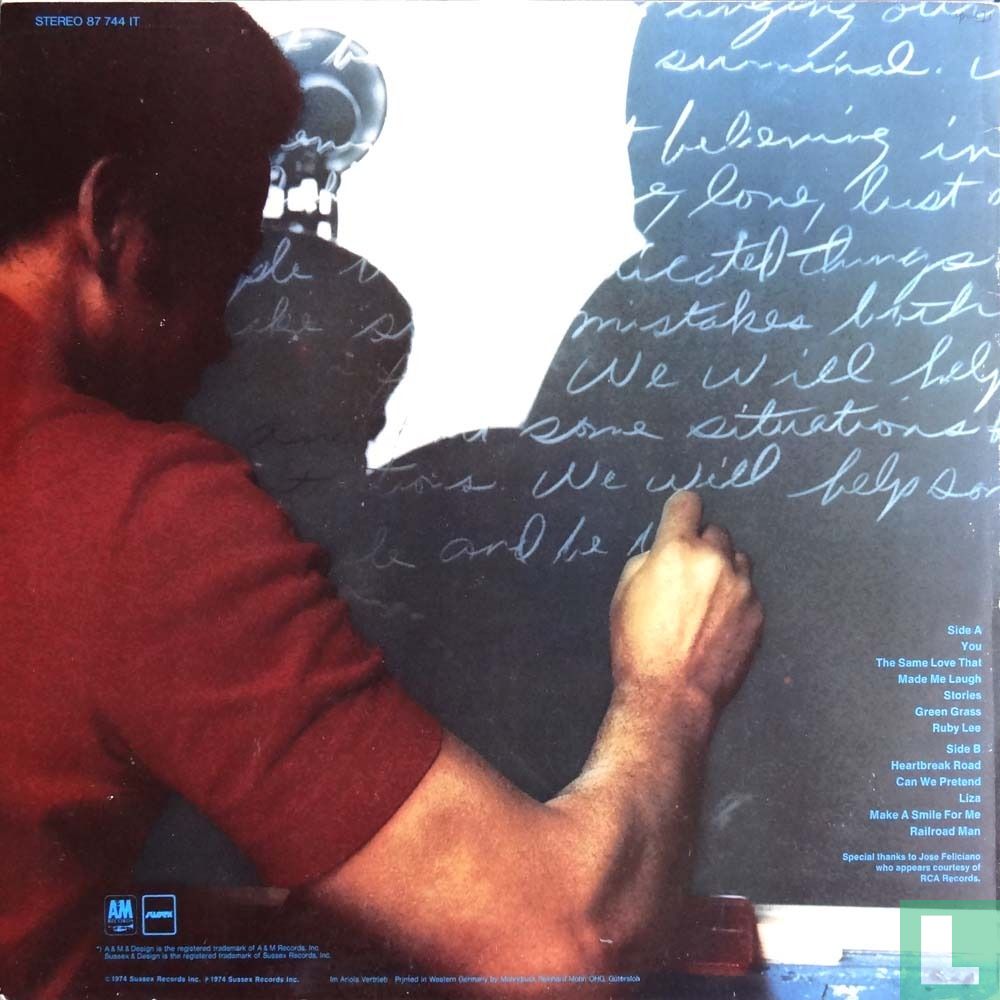 STEREO 87 744 IT
believing in
love, lust
things
mistakes both
We will help
some situations
We will help
and be
Side A
You
The Same Love That
Made Me Laugh
Stories
Green Grass
Ruby Lee
Side B
Heartbreak Road
Can We Pretend
Liza
Make A Smile For Me
Railroad Man
Special thanks to Jose Feliciano
who appears courtesy of
RCA Records.
A&M
RECORDS
*) A & M & Design is the registered trademark of A & M Records, Inc
Sussex & Design is the registered trademark of Sussex Records, Inc.
© 1974 Sussex Records Inc. ℗ 1974 Sussex Records Inc. Im Ariola Vertrieb Printed in Western Germany by Mohndruck Reinhard Mohn OHG, Gütersloh
L